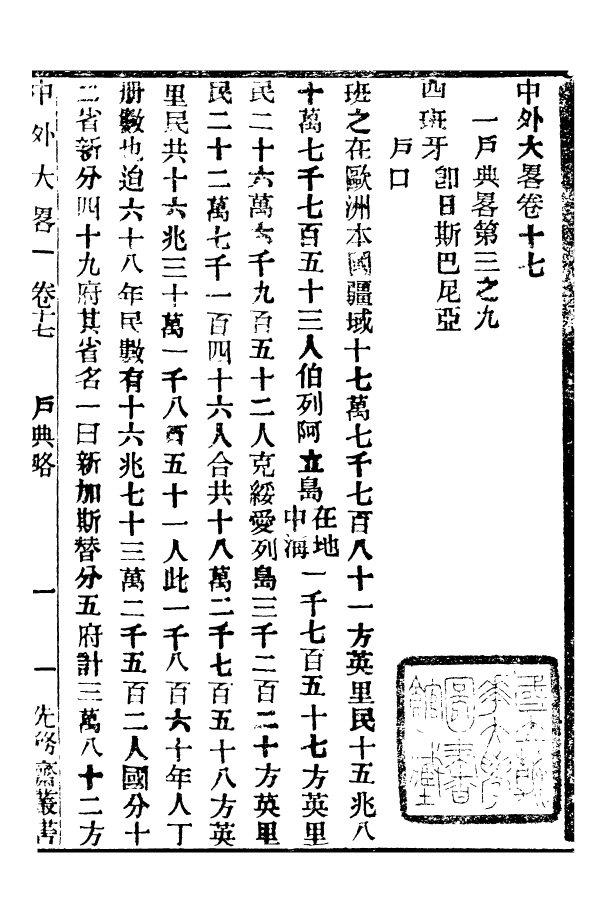 中外大畧卷十七
一戶典畧第三之九
西班牙 卽日斯巴尼亞
戶口
班之在歐洲本國疆域十七萬七千七百八十一方英里民十五兆八
十萬七千七百五十三人伯列阿立島在地中海一千七百五十七方英里
民二十六萬六千九百五十二人克綏愛列島三千二百二十方英里
民二十二萬七千一百四十六人合共十八萬二千七百五十八方英
里民共十六兆三十萬一千八百五十一人此一千八百六十年人丁
册數也迨六十八年民數有十六兆七十三萬二千五百二人國分十
二省新分四十九府其省名一曰新加斯替分五府計三萬八十二方
中外大畧一 卷十七 戶典略 一 一 先修齋叢書
國立北平大學
圖書
館藏